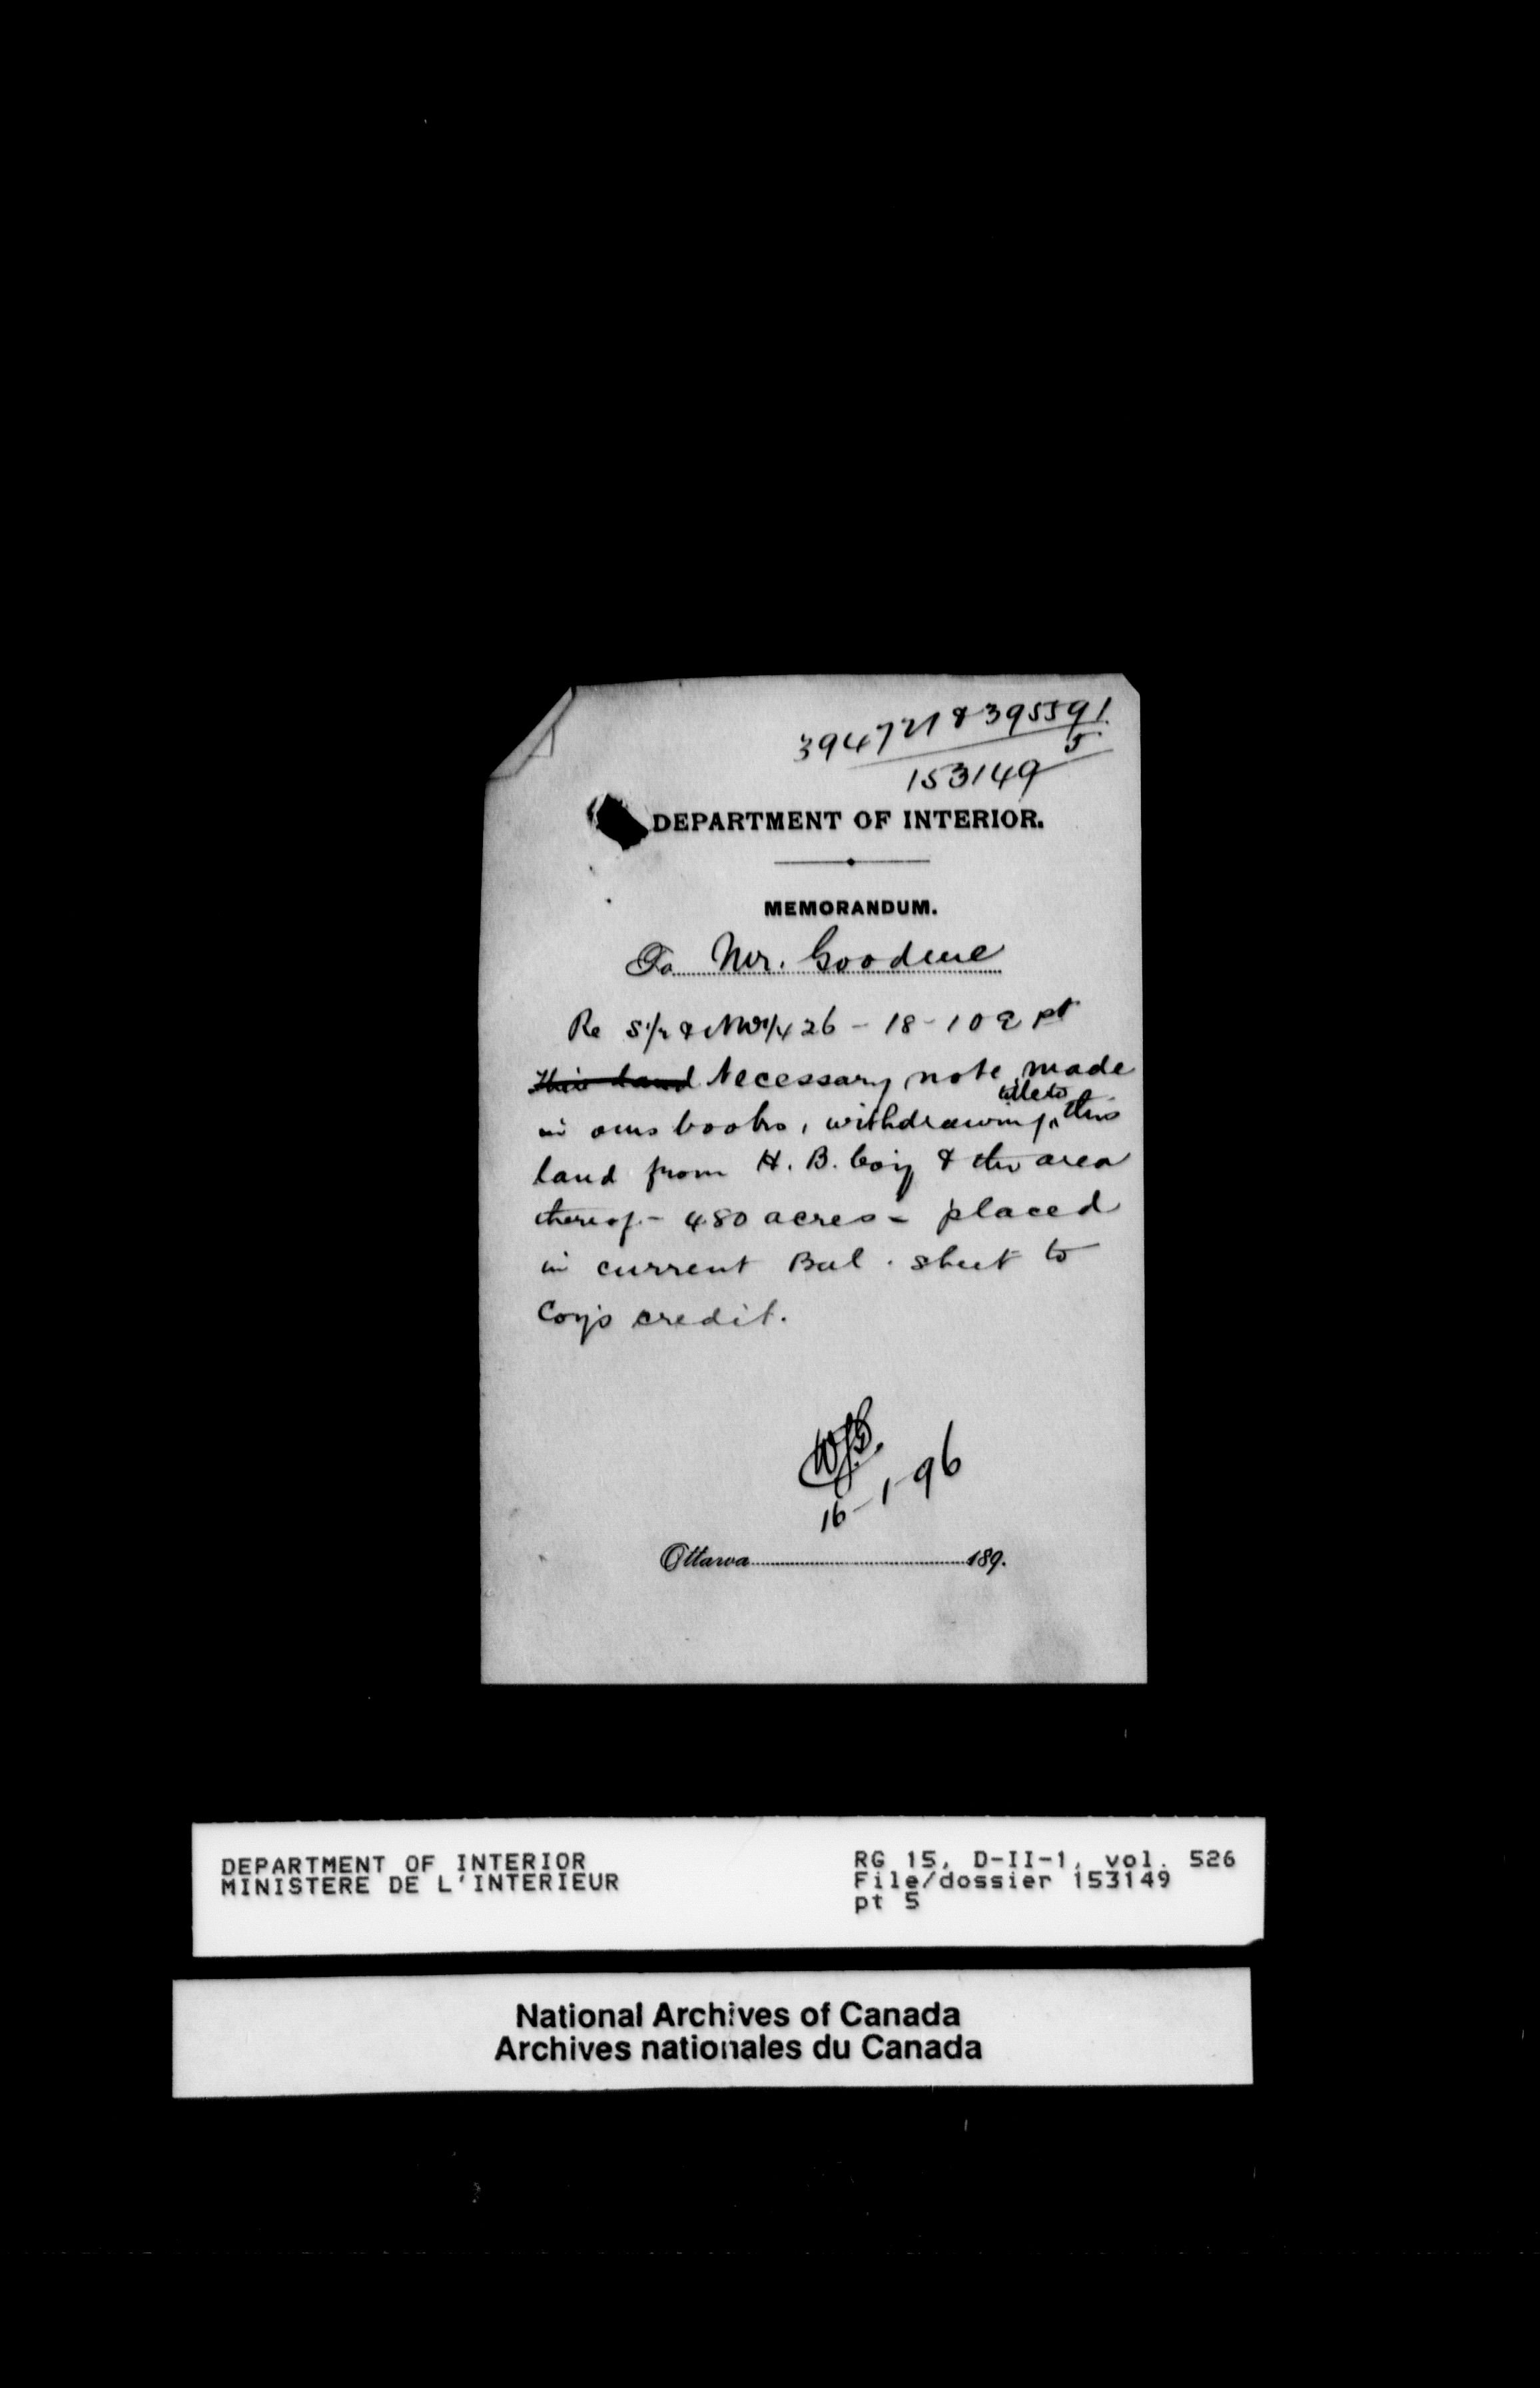 394721 & 395591
153149 5
DEPARTMENT OF INTERIOR.
MEMORANDUM.
To Mr. Goodeve
Re S 1/2 & NW 1/4 26 - 18 - 10 2 pt
This land Necessary note made
in our books, withdrawing title to this
land from H. B. Coy & the area
thereof - 480 acres - placed
in current Bal. sheet to
Coy's credit.
16-1-96
Ottawa 189.
DEPARTMENT OF INTERIOR
MINISTERE DE L'INTERIEUR
RG 15, D-II-1, vol. 526
File/dossier 153149
pt 5
National Archives of Canada
Archives nationales du Canada